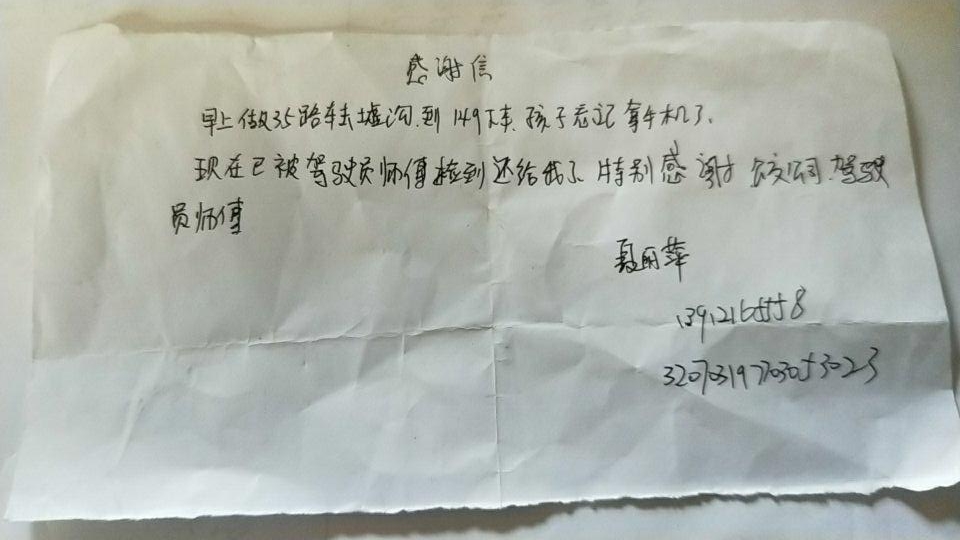 感谢信
早上做35路车去墟沟.到149下车.孩子忘记拿手机了.
现在已被驾驶员师傅捡到还给我了.特别感谢公交公司.驾驶
员师傅
夏丽萍
320703197703053023